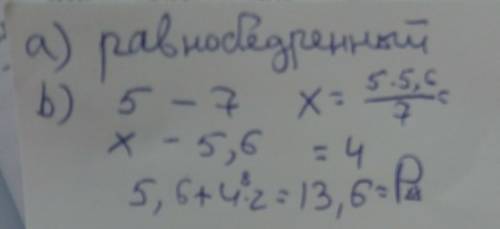 а) равнобедренный
b) 5 – 7 x = 5·5,6/7 =
x – 5,6 = 4
5,6+4·2=13,6=P△